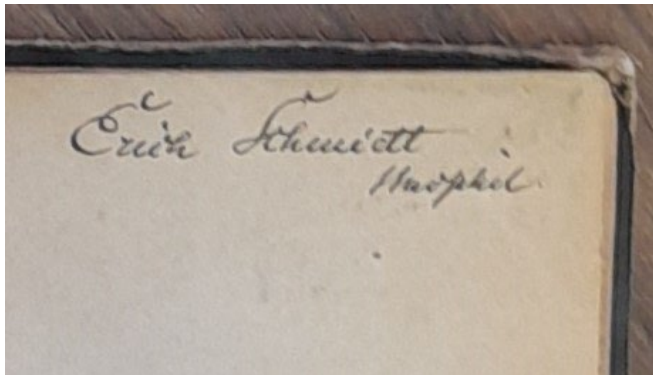 Erich Schmidt
stud phil.